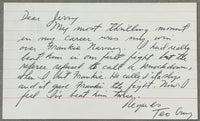 Dear Jerry
My most thrilling moment
in my career was my win
over Frankie Nernay. I had really
beat him in our first fight but the
referee refused to call a knockdown,
when I hit Frankie. He called it a slip
and it gave Frankie the fight. Now I
feel I've beat him twice.
Regards
Ted